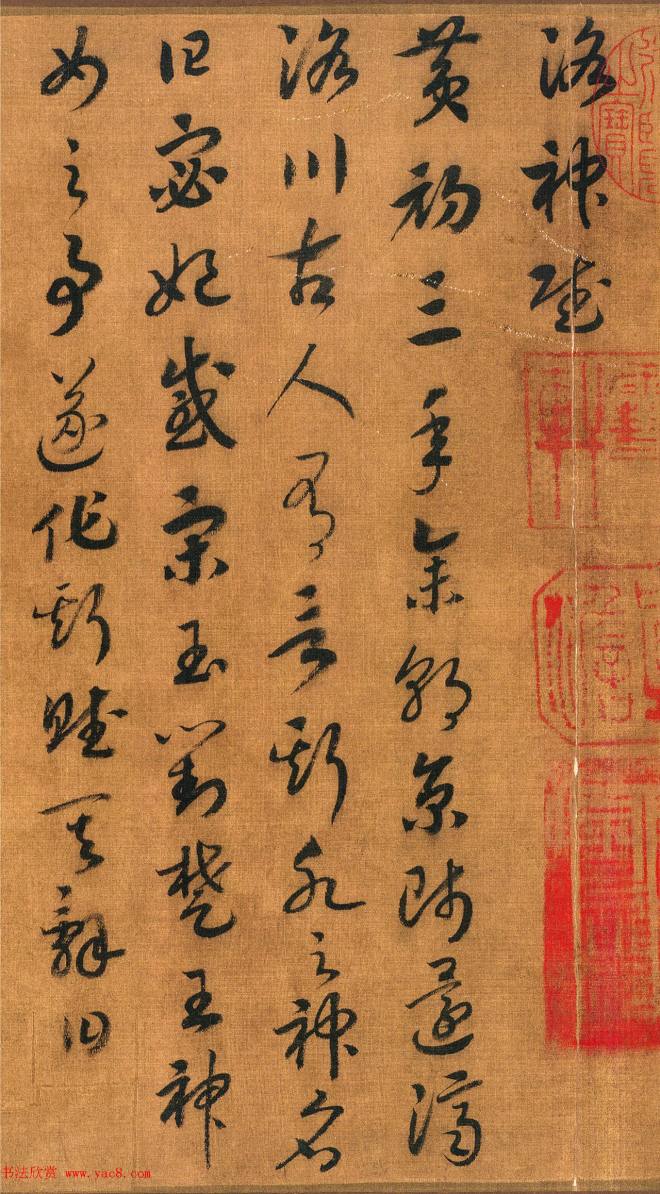 洛神賦
黃初三年余朝京師還濟
洛川古人有言斯水之神名
曰宓妃感宋玉對楚王神
女之事遂作斯賦其辭曰
书法欣赏 www.yac8.com